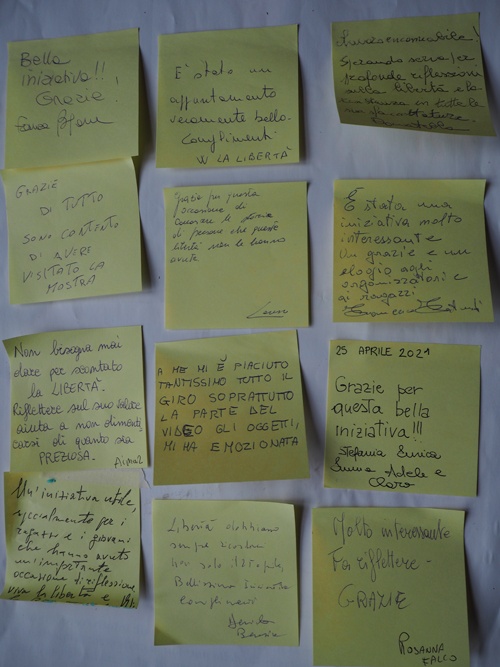 Bella
iniziativa!!
Grazie!
E' stato un
appuntamento
veramente bello.
Complimenti
W LA LIBERTÀ
Iniziativa encomiabile!
Sperando serva per
profonde riflessioni
sulla libertà e la
GRAZIE
DI TUTTO
SONO CONTENTO
DI AVERE
VISITATO LA
MOSTRA
Grazie per questa
occasione di
conoscere le storie
di persone che questa
libertà non le hanno
avute
È stata una
iniziativa molto
interessante
Un grazie e un
elogio agli
organizzatori e
ai ragazzi
Non bisogna mai
dare per scontato
la LIBERTÀ.
Riflettere sul suo valore
aiuta a non dimenti-
carsi di quanto sia
PREZIOSA.
A ME MI È PIACIUTO
TANTISSIMO TUTTO IL
GIRO SOPRATTUTTO
LA PARTE DEL
VIDEO GLI OGGETTI,
MI HA EMOZIONATA
25 APRILE 2021
Grazie per
questa bella
iniziativa!!!
Stefania Enrica
Emma Adele e
Un'iniziativa utile,
specialmente per i
ragazzi e i giovani
che hanno avuto
un'importante
occasione di riflessione
viva la libertà e
Libertà dobbiamo
sempre ricordare
non solo il 25 aprile
Bellissima iniziativa
Complimenti
Molto interessante
Fa riflettere -
GRAZIE
ROSANNA
FALCO